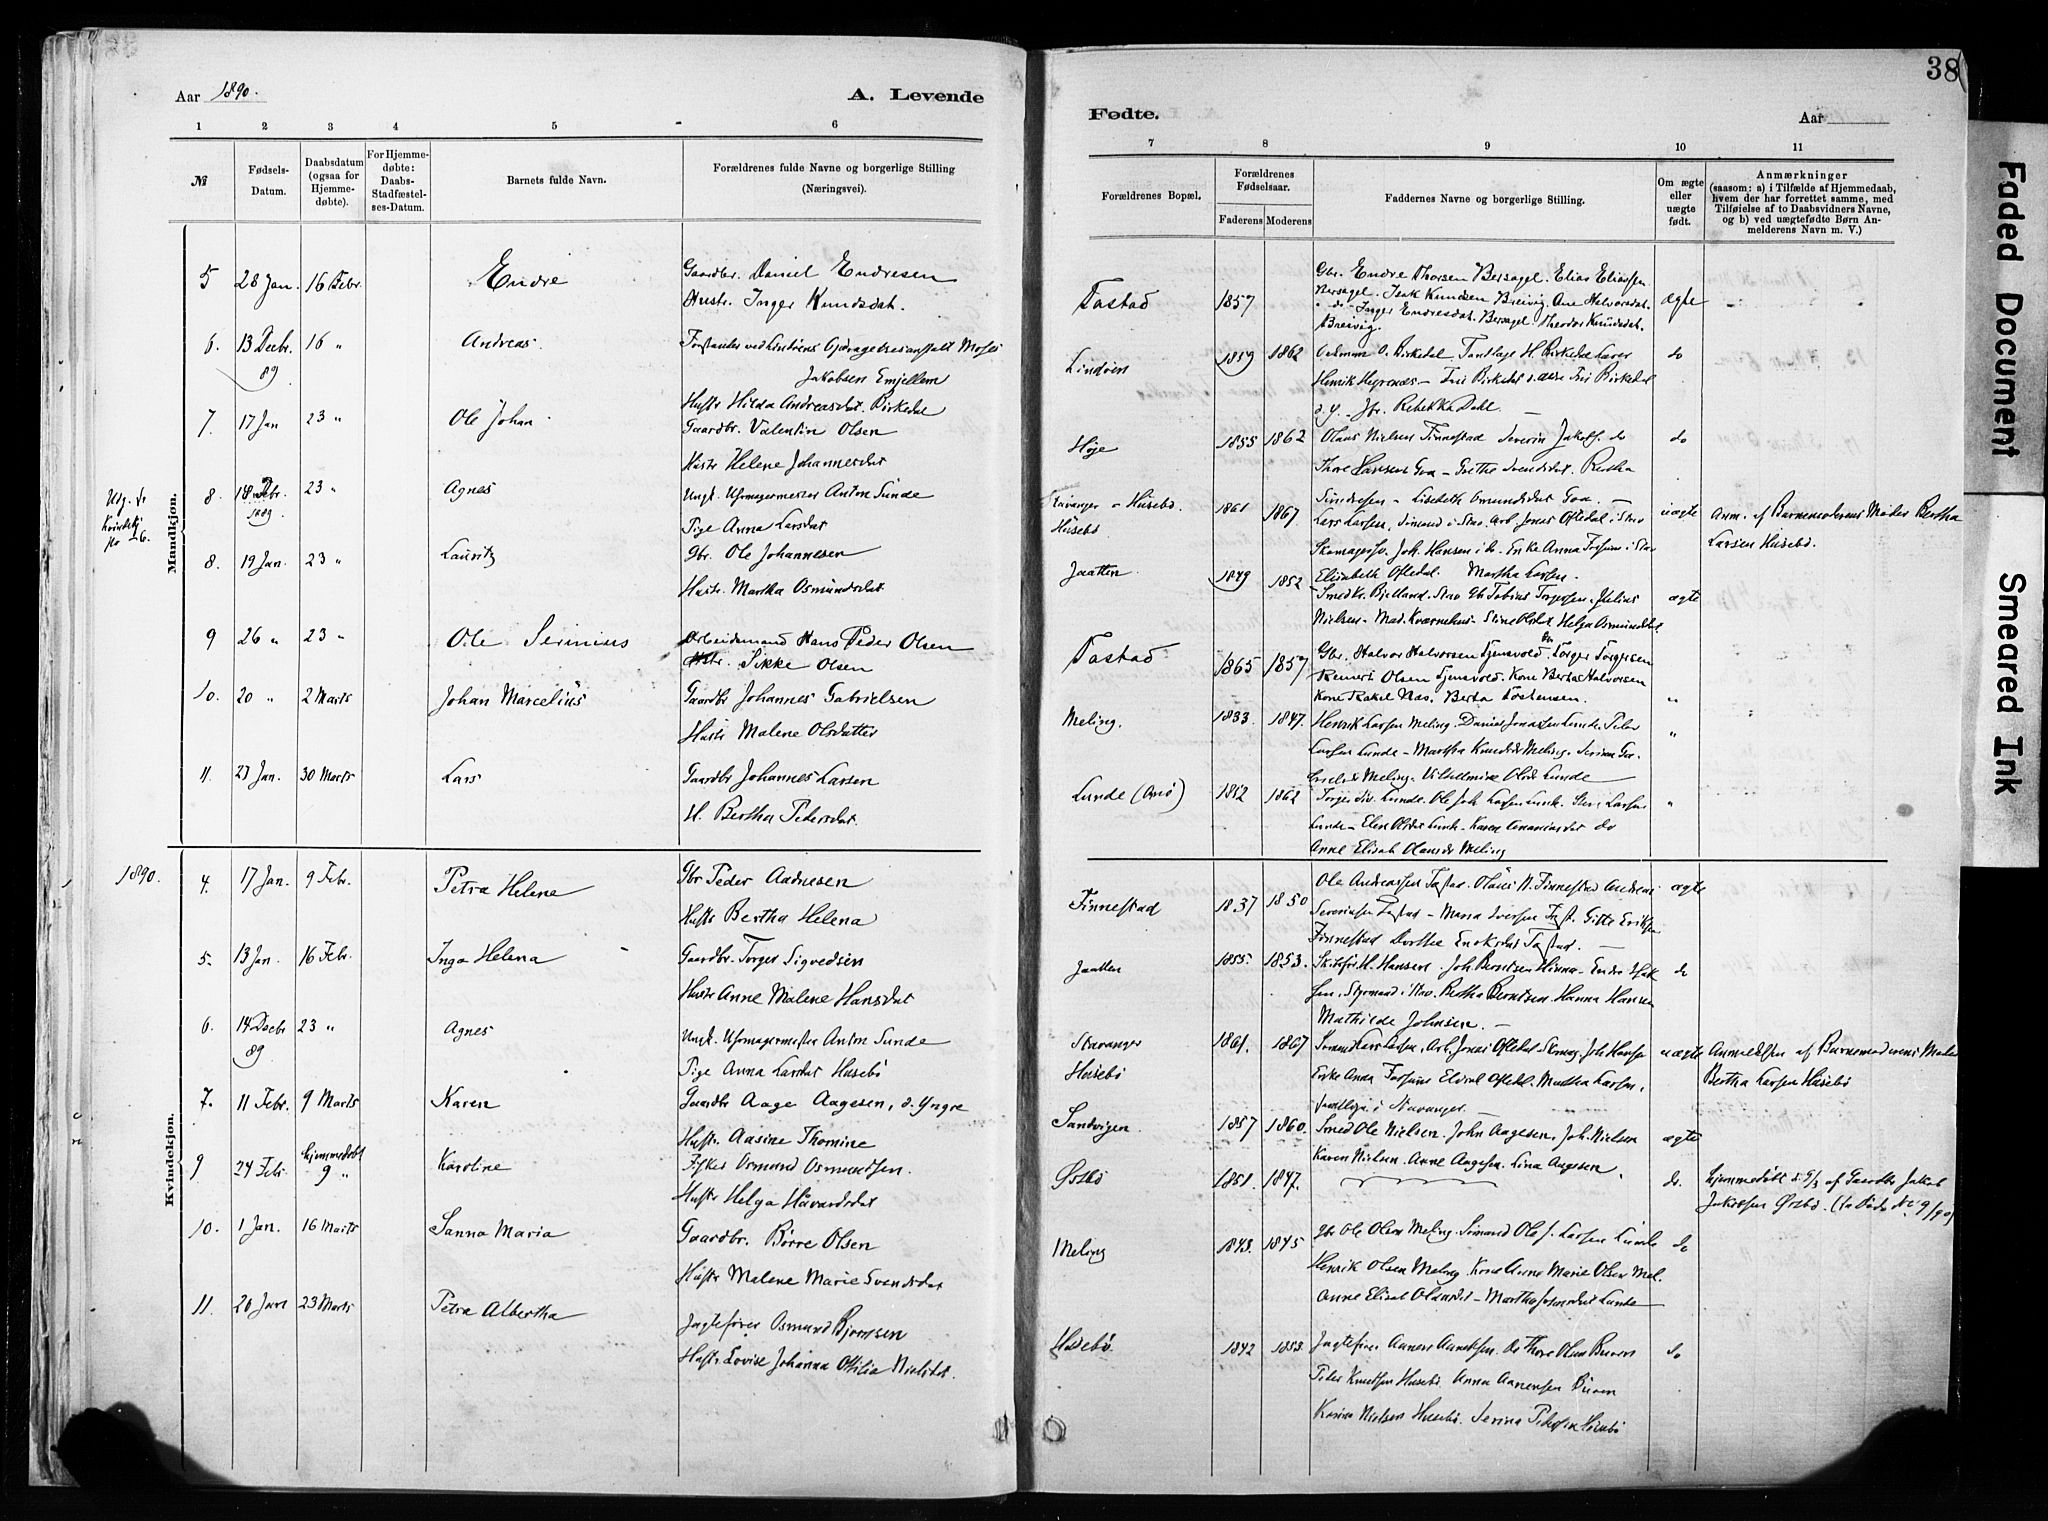 Aar 1890.
A. Levende
1 2 3 4 5 6
№
Fødsels-Datum.
Daabsdatum (ogsaa for Hjemme-døbte).
For Hjemme-døbte: Daabs-Stadfæstel-ses-Datum.
Barnets fulde Navn.
Forældrenes fulde Navne og borgerlige Stilling (Næringsvei).
Mandkjøn.
5 28 Jan. 16 Febr. Endre Gaardbr. Daniel Endresen
Hustr. Inger Knudsdat.
6. 13 Decbr. 89 16 " Andreas. Forstander ved Lindøens Opdragelsesanstalt Moses
Jakobsen Emjellem
Hustr Hilda Andreasdat. Birkedal
7. 17 Jan 23 " Ole Johan Gaardbr. Valentin Olsen
Hustr Helene Johannesdat
8. 18 Febr. 1889 23 " Agnes Ungk. Uhrmagermester Anton Sunde
Pige Anna Larsdat
8. 19 Jan. 23 " Lauritz Gbr. Ole Johannesen
Hustr. Martha Osmundsdat.
9 26 " 23 " Ole Serinius Arbeidsmand Hans Peder Olsen
Sikke Olsen
10. 20 " 2 Marts Johan Marcelius Gaardbr Johannes Gabrielsen
Hustr Malene Olsdatter
11. 27 Jan. 30 Marts Lars Gaardbr Johannes Larsen
H. Bertha Pedersdat.
1890.
Kvindekjøn.
4. 17 Jan. 9 Febr. Petra Helene Gbr Peder Aadnesen
Hustr Bertha Helena
5. 13 Jan. 16 Febr. Inga Helena Gaardbr. Torger Sigvedsen
Hustr Anne Malene Hansdat
6. 14 Decbr 89 23 " Agnes Ungk. Uhrmagermester Anton Sunde
Pige Anna Larsdat Husebø
7. 11 Febr. 9 Marts Karen Gaardbr Aage Aagesen, d. Yngre
Hustr. Aasine Thomine
9 24 Febr. hjemmedøbt 9 " Karoline Fisker Osmund Osmundsen.
Hustr Helga Håvardsdat
10. 1 Jan. 16 Marts Sanna Maria Gaardbr. Børre Olsen
Hustr Malene Marie Svendsdat
11. 26 Jan 23 Marts Petra Albertha Jagtefører Osmund Bjørnsen
Hustr. Lovise Johanna Othilia Nielsdat.
Fødte.
Aar
38
7 8 9 10 11
Forældrenes Bopæl.
Forældrenes Fødselsaar.
Faderens Moderens
Faddernes Navne og borgerlige Stilling.
Om ægte eller uægte født.
Anmærkninger
(saasom: a) i Tilfælde af Hjemmedaab, hvem der har forrettet samme, med Tilføielse af to Daabsvidners Navne, og b) ved uægtefødte Børn An-melderens Navn m. V.)
Tastad 1857 Gbr. Endre Thorsen Bersagel. Elias Eliassen ægte
Bersagel. Isak Knudsen Breivig. Ane Halvorsdat.
Inger Endresdat. Bersagel. Theodor Knudsdat.
Breivig.
Lindøen 1859 1862 O. Birkedal, Tandlæge H. Birkedal do
Henrik
Rebekka Dahl.
Høje 1855 1862 Olaus Nielsen Finnestad Severin Jakobs. do do
Thore Hansen Goa - Grethe Svendsdat. Bertha
Stavanger - Husebø. 1861 1867 Simonsen - Lisebeth Amundsdat Goa. uægte Anm. af Barnemoderens Moder Bertha
Husebø Lars Larsen, Sømand i Stav. Arb. Jonas Oftedal i Stav Larsen Husebø.
Skomagersv. Joh. Hansen i do. Enke Anna
Jaatten 1849 1852 Elisabeth Oftedal. Martha Larsen.
Smed Kr. Bjelland. Stav Gbr Tobias Torgersen. Julius ægte
Nielsen - Mad. Kvernehus - Stine Helga Osmundsdat.
Tastad 1865 1857 Gbr. Halvor Halvorsen Tjensvold. Torger Torgersen
Reinert Olsen Tjensvold. Kone Berta Halvorsen
Kone Rakel Næs. Berta Tostensen. "
Meling. 1833. 1847. Henrik Larsen Meling. Daniel Jonassen Lunde. Peder "
Larsen Lunde - Martha Knudsd Meling. Serine Ga-
brielsd Meling. Vilhelmine Olsd Lunde
Lunde (Ansø) 1852 1862 Torger Lunde. Ole Joh Larsen Lunde. Larsen "
Lunde - Elen Olsdat Lunde - Karen Ananiasdat do
Anne Elisab Olausd Meling
Finnestad 1837 1850 Ole Andreassen Tastad. Olaus N. Finnestad Andreas ægte
Severinsen Tastad - Maria Iversen Tast. Gitte Eriksen
Finnestad Dorthe Eriksdat Tastad.
Jaatten 1855. 1853. H. Hansen. Joh Berntsen Hinna - Endre Isak do
sen. Styrmand i Stav. Bertha Berntsen. Hanna Hansen
Mathilde Johnsen.
Stavanger 1861. 1867 Sømand Lars Larsen, Arb. Jonas Oftedal Skomag. Joh. Hansen uægte Anmeldelsen af Barnemoderens Moder
Husebø Enke Anna Oftedal. Martha Larsen, Bertha Larsen Husebø
samtlige i Stavanger.
Sandvigen 1857 1860. Smed Ole Nielsen. John Aagesen, Joh. Nielsen ægte
Karen Nielsen. Anne Aagesen. Lina Aagesen
Østbø 1851. 1847. do. hjemmedøbt af Gaardbr Jakob
Jakobsen Østbø. (se Døde No 9/90)
Meling 1843. 1845 gbr Ole Olsen Meling. Sømand Ole J. Larsen Lunde do
Henrik Olsen Meling. Kone Anne Marie Olsen Mel.
Anne Elisab Olausdat - Martha Lunde
Husebø. 1842 1853. Jagtefører Thore Olsen do
Peder Knudsen Husebø Anna Aanensen
Karine Nielsen Husebø. Serina Husebø
Faded Document
Smeared Ink